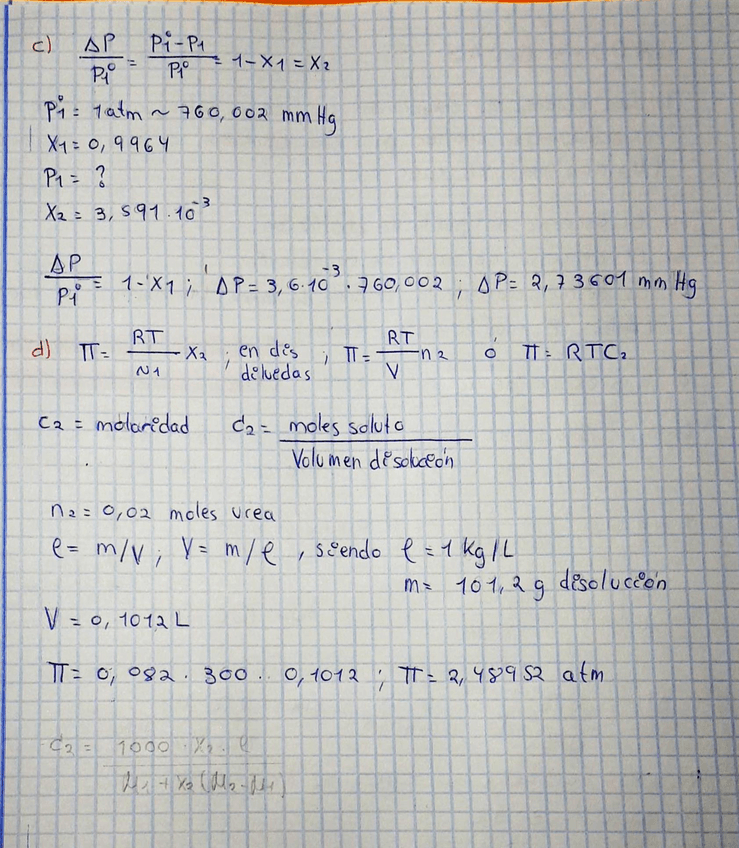 c) ΔP/P₁° = P₁°-P₁/P₁° = 1-X₁ = X₂
P₁° = 1atm ~ 760,002 mmHg
X₁ = 0,9964
P₁ = ?
X₂ = 3,591·10⁻³
ΔP/P₁° = 1-X₁ ; ΔP = 3,6·10⁻³·760,002 ; ΔP = 2,73601 mmHg
d) π = RT/N₁ X₂ ; en dis diluedas ; π = RT/V n₂ ó π = RTC₂
C₂ = molaridad C₂ = moles soluto/Volumen disolución
n₂ = 0,02 moles urea
ρ = m/V ; V = m/ρ , siendo ρ = 1 Kg/L
m = 101,2 g disolución
V = 0,1012 L
π = 0,082 · 300 · · 0,1012 ; π = 2,48952 atm
C₂ = 1000 · X₂ · ρ/M₁ + X₂(M₂-M₁)